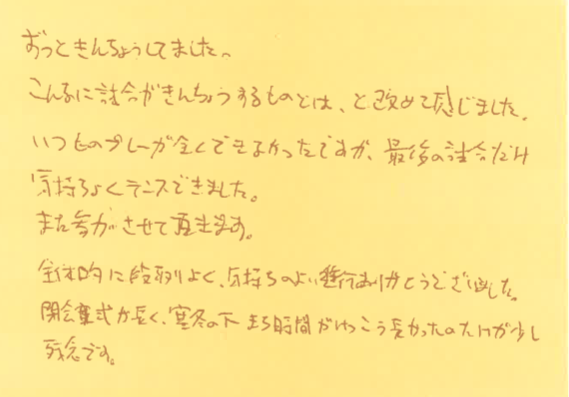 ずっときんちょうしてました。
こんなに試合がきんちょうするものとは、と改めて感じました。
いつものプレーが全くできなかったですが、最後の試合だけ
気持ちよくテニスできました。
また参加させて頂きます。
全体的に段取りよく、気持ちのよい進行ありがとうございました。
閉会式が長く、寒冬の下 まち時間がけっこう長かったのだけが少し
残念です。